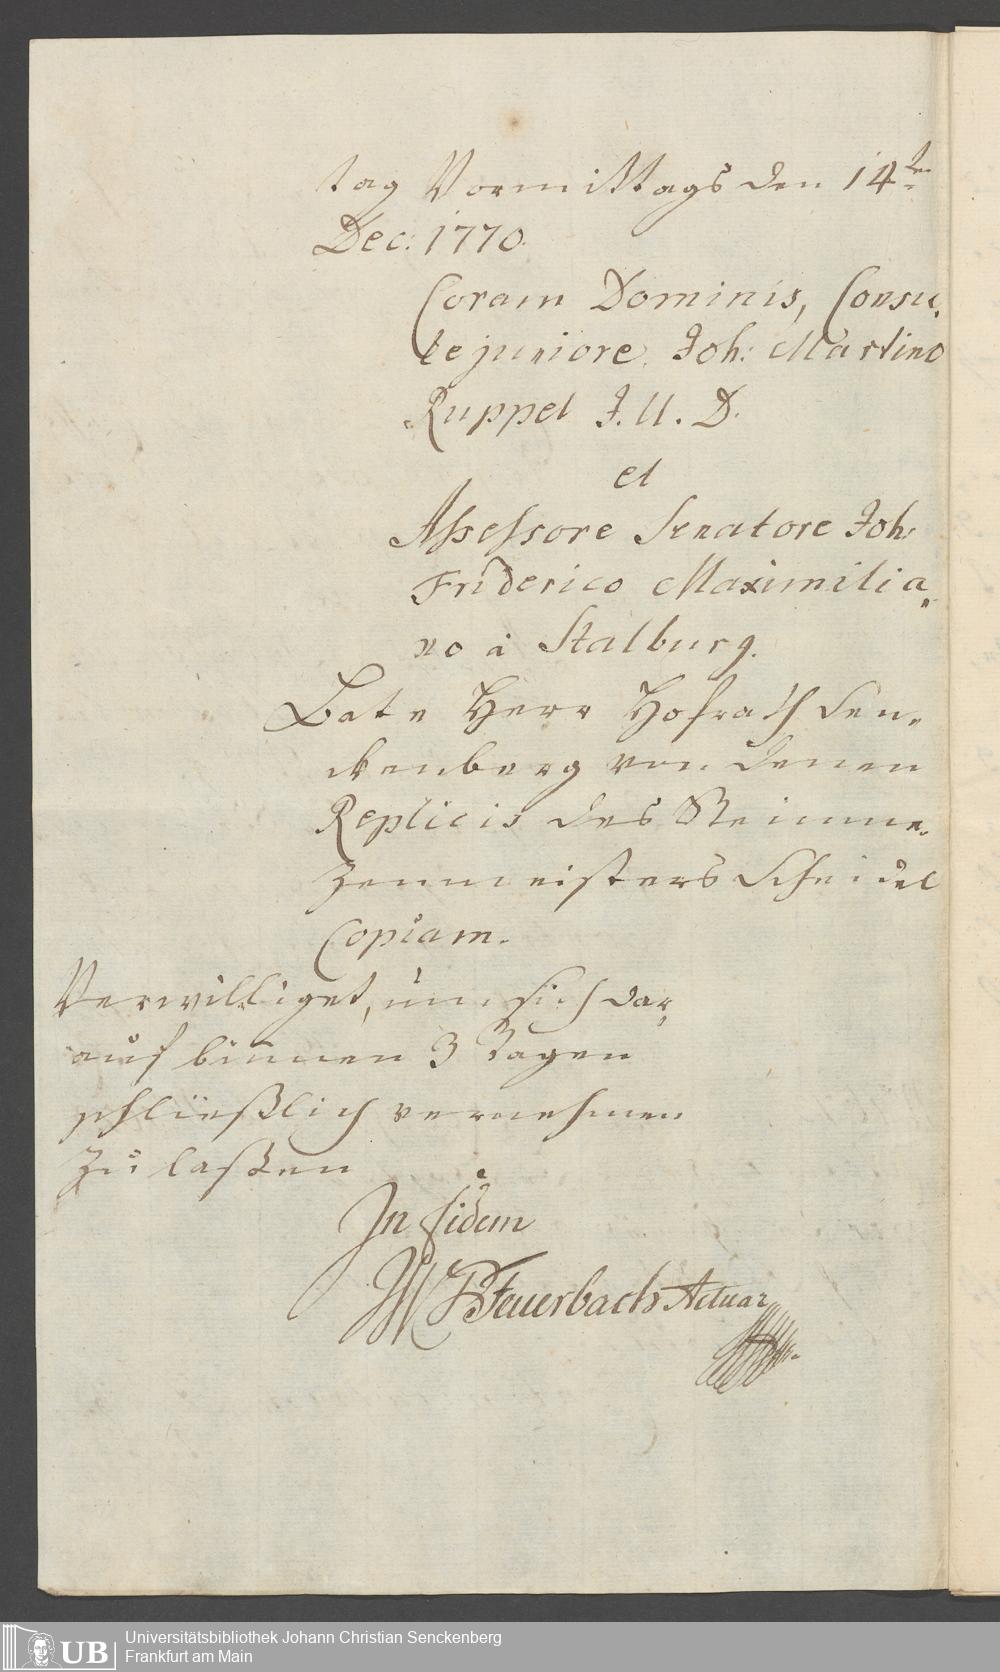 tag Vormittags den 14ten
Dec: 1770.
Coram Dominis, Consu,
le juniore. Joh: Martino
Ruppel J. U. D.
et
Assessore Senatore Joh:
Friderico Maximilia„
no à Stalburg.
Bate Herr Hofrath Sen„
ckenberg von denen
Replicis des Steinme„
zenmeisters Scheidel
Copiam.
Verwilliget, um sich dar„
auf binnen 3 Tagen
schließlich vernehmen
zu laßen
In fidem
Feuerbach Actuar
UB
Universitätsbibliothek Johann Christian Senckenberg
Frankfurt am Main